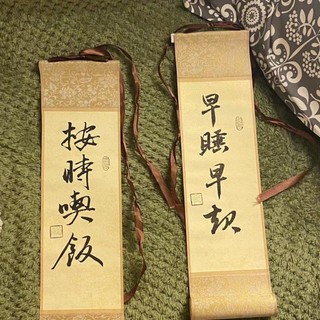 早睡早起
按時喫飯